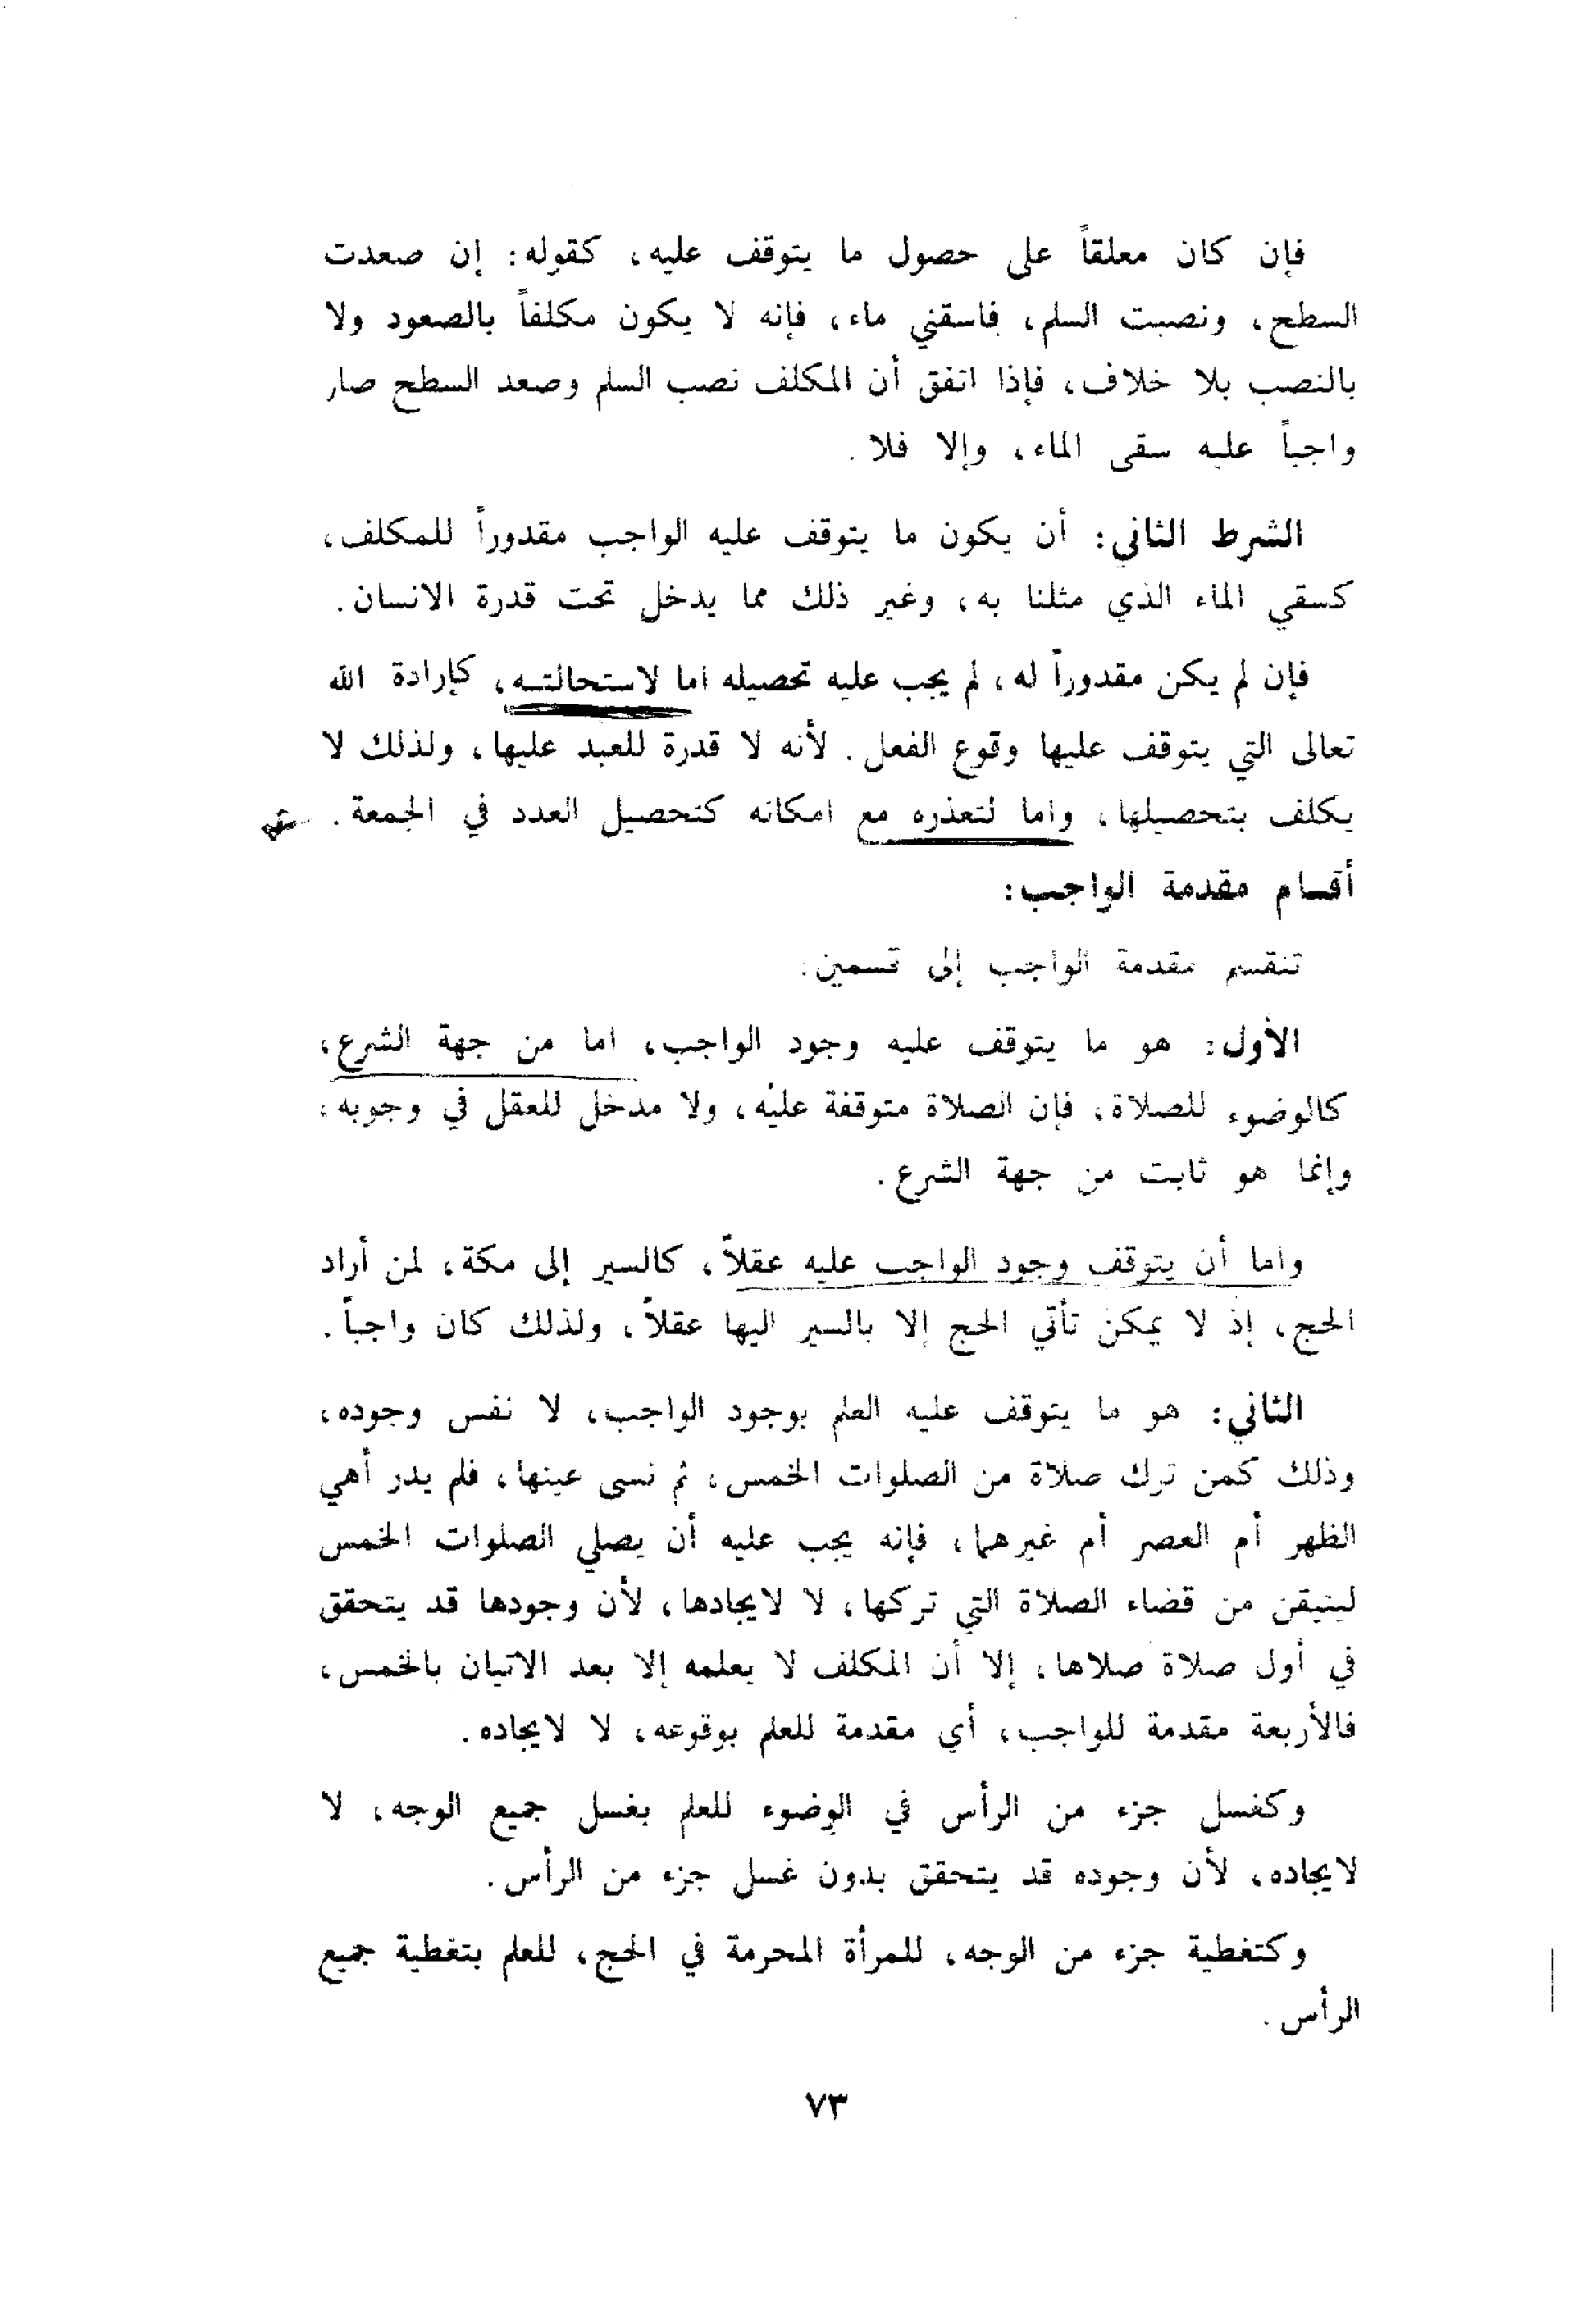 فإن كان معلقاً على حصول ما يتوقف عليه، كقوله: إن صعدت
السطح، ونصبت السلم، فاسقني ماء، فإنه لا يكون مكلفاً بالصعود ولا
بالنصب بلا خلاف، فإذا اتفق أن المكلف نصب السلم وصعد السطح صار
واجباً عليه سقي الماء، وإلا فلا.
الشرط الثاني: أن يكون ما يتوقف عليه الواجب مقدوراً للمكلف،
كسقي الماء الذي مثلنا به، وغير ذلك مما يدخل تحت قدرة الانسان.
فإن لم يكن مقدوراً له، لم يجب عليه تحصيله اما لاستحالته، كإرادة الله
تعالى التي يتوقف عليها وقوع الفعل. لأنه لا قدرة للعبد عليها، ولذلك لا
يكلف بتحصيلها، واما لتعذره مع امكانه كتحصيل العدد في الجمعة.
أقسام مقدمة الواجب:
تنقسم مقدمة الواجب إلى قسمين:
الأول: هو ما يتوقف عليه وجود الواجب، اما من جهة الشرع،
كالوضوء للصلاة، فإن الصلاة متوقفة عليه، ولا مدخل للعقل في وجوبه،
وإنما هو ثابت من جهة الشرع.
واما أن يتوقف وجود الواجب عليه عقلاً، كالسير إلى مكة، لمن أراد
الحج، إذ لا يمكن تأتي الحج إلا بالسير اليها عقلاً، ولذلك كان واجباً.
الثاني: هو ما يتوقف عليه العلم بوجود الواجب، لا نفس وجوده،
وذلك كمن ترك صلاة من الصلوات الخمس، ثم نسى عينها، فلم يدر أهي
الظهر أم العصر أم غيرهما، فإنه يجب عليه أن يصلي الصلوات الخمس
ليتيقن من قضاء الصلاة التي تركها، لا لايجادها، لأن وجودها قد يتحقق
في أول صلاة صلاها، إلا أن المكلف لا يعلمه إلا بعد الاتيان بالخمس،
فالأربعة مقدمة للواجب، أي مقدمة للعلم بوقوعه، لا لايجاده.
وكغسل جزء من الرأس في الوضوء للعلم بغسل جميع الوجه، لا
لايجاده، لأن وجوده قد يتحقق بدون غسل جزء من الرأس.
وكتغطية جزء من الوجه، للمرأة المحرمة في الحج، للعلم بتغطية جميع
الرأس.
٧٣